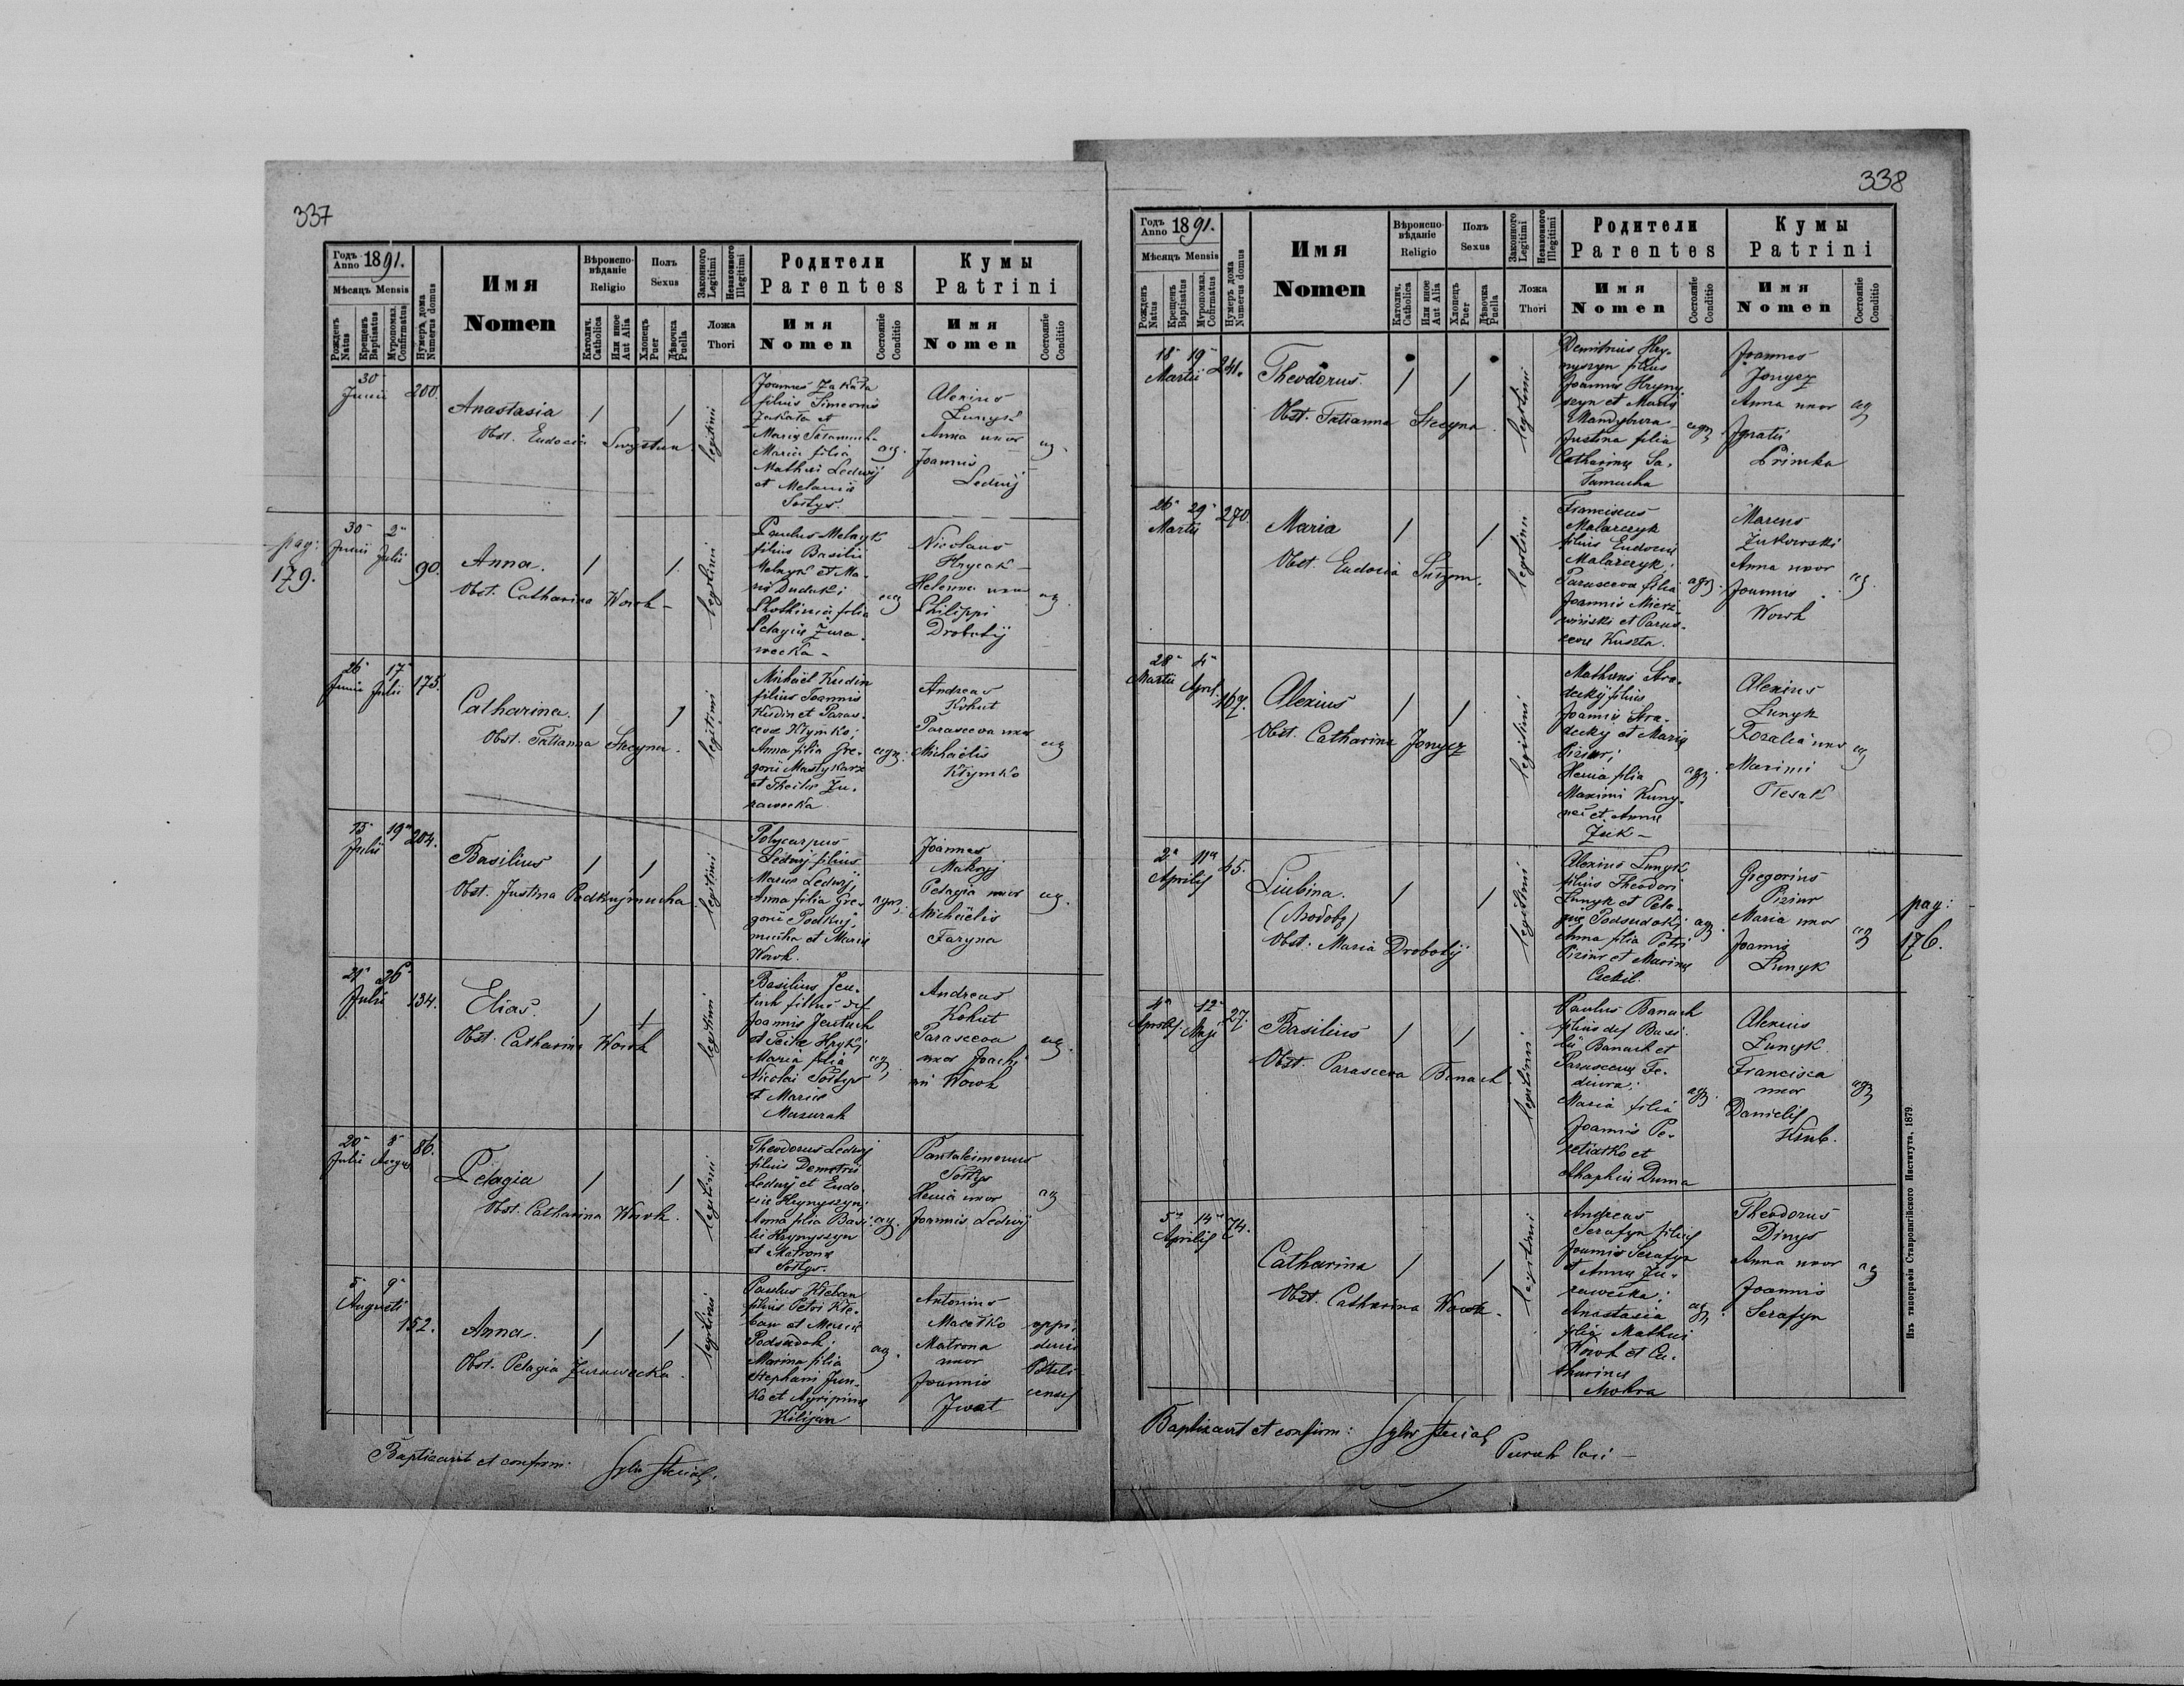 337
Годъ Anno 1891.
Мѣсяцъ Mensis
Рожденъ Natus
Крещенъ Baptisatus
Мvропомаз. Confirmatus
Нумеръ дома Numerus domus
Имя
Nomen
Вѣроисповѣданіе
Religio
Католич. Catholica
Или иное Aut Alia
Полъ
Sexus
Хлопецъ Puer
Дѣвочка Puella
Законного Legitimi
Незаконного Illegitimi
Ложа
Thori
Родители
Parentes
Имя
Nomen
Состояніе Conditio
Кумы
Patrini
Имя
Nomen
Состояніе Conditio
30
Junii
200.
Anastasia
Obst. Eudocia
legitimi
Joannes Zakała
filius Simeonis
Zakała et
Maria filia
Mathei Ledwij
et Melanii
Sołtys.
ag.
Alexius
Lunyk
Anna uxor
Joannis
Ledwij
ag.
pag:
179.
30 2
Junii Julii
90.
Anna.
Obst. Catharina Wowk
legitimi
Paulus Melnyk
filius Basilii
Melnyk et Ma-
filia
Pelagiæ Żura-
wecka
ag
Nicolaus
Hrycak
Helena uxor
Philippi
Drobotij
ag.
26 17
Junii Julii
175.
Catharina.
Obst. Tatianna Stecyna.
legitimi
Michael Kudin
filius Joannis
Kudin et Paras-
ceva Klymko;
Anna filia Gre-
gorii Mastykarz
et Theclæ Żu-
rawecka
agr.
Andreas
Kohut
Parasceva uxor
Michaelis
Klymko
ag
15 19
Julii
204.
Basilius
Obst. Justina Podkujmucha
legitimi
Polycarpus
Ledwij filius
Mariæ Ledwij;
Anna filia Gre-
gorii Podkuj-
mucha et Maria
Wowk.
agr.
Joannes
Mokryj
Pelagia uxor
Michaëlis
Faryna
ag.
21 26
Julii
134.
Elias.
Obst. Catharina Wowk
legitimi
Basilius Jen-
tuch filius def
Joannis Jentuch
et Teclæ Hryk;
Maria filia
Nicolai Sołtys
et Mariæ
Mazurak
ag
Andreas
Kohut
Parasceva
uxor Joachi-
mi Wowk
ag.
20 5
Julii Augus
86.
Pelagia
Obst. Catharina Wowk.
legitimi
Theodorus Ledwij
filius Demetrii
Ledwij et Eudo-
ciæ Hrynyszyn;
Anna filia Basi-
lii Hrynyszyn
et Matrona
Sołtys.
ag.
Pantaleimonus
Sołtys
Xenia uxor
Joannis Ledwij
ag
5 9
Augusti
152.
Anna.
Obst. Pelagia Żurawecka.
legitimi
Paulus Kleban
filius Petri Kle-
ban et Maria
Podsadok.
Marina filia
Stephani Jun-
ko et Agripina
Kilijan
ag.
Antonius
Macełko
Matrona
uxor
Joannis
Jwat
oppi-
Baptisavit et confirm:
338
Годъ Anno 1891.
Мѣсяцъ Mensis
Рожденъ Natus
Крещенъ Baptisatus
Мvропомаз. Confirmatus
Нумеръ дома Numerus domus
Имя
Nomen
Вѣроисповѣданіе
Religio
Католич. Catholica
Или иное Aut Alia
Полъ
Sexus
Хлопецъ Puer
Дѣвочка Puella
Законного Legitimi
Незаконного Illegitimi
Ложа
Thori
Родители
Parentes
Имя
Nomen
Состояніе Conditio
Кумы
Patrini
Имя
Nomen
Состояніе Conditio
18 19
Martii
241.
Theodorus.
Obst. Tatianna Stecyna.
legitimi
Demitrius Hry-
nyszyn filius
Joannis Hryny-
szyn et Maria
Mandybura
Justina filia
Catharinæ Sa-
lamucha
agr.
Joannes
Jonycz
Anna uxor
Jgnatii
Primka
ag
26 29
Martii
270.
Maria
Obst. Eudocia
legitimi
Franciscus
Malarczyk
filius Eudociæ
Malarczyk;
Parasceva filia
Joannis Mierz-
wiński et Paras-
ceva Kuszta.
agr.
Marcus
Żukowski
Anna uxor
Joannis
Wowk
ag.
28 4
Martii April.
167.
Alexius
Obst. Catharina Jonycz
legitimi
Matheus Stra-
decky filius
Joannis Stra-
decky et Maria
Piziur;
Xenia filia
Maximi Kuny-
nec et Anna
Żuk
agr.
Alexius
Lunyk
Rozalia uxor
Maximi
Plesak
ag
2 11
Aprilis
45.
Liubina.
Obst. Maria Drobotij
legitimi
Alexius Lunyk
filius Theodori
Lunyk et Pela-
giæ Podsadok;
Anna filia Petri
Piziur et Marina
agr.
Gregorius
Piziur
Maria uxor
Joannis
Lunyk
ag
pag:
176.
4 12
Aprilis Maji
27.
Basilius
Obst. Parasceva Banach
legitimi
Paulus Banach
filius def Basi-
lii Banach et
Parasceva Fe-
diura;
Maria filia
Joannis Pe-
retiatko et
Ahaphia Duma
agr.
Alexius
Lunyk.
Francisca
uxor
Danielis
Kłub.
agr
5 14
Aprilis
74.
Catharina
Obst. Catharina Wowk.
legitimi
Andreas
Serafyn filius
Joannis Serafyn
et Anna Żu-
rawecka;
Anastasia
filia Mathei
Wowk et Ca-
tharina
Mokra
agr.
Theodorus
Dinys
Anna uxor
Joannis
Serafyn
ag
Baptisavit et confirm:
Paroch loci
Изъ типографіи Ставропигійского Института, 1879.